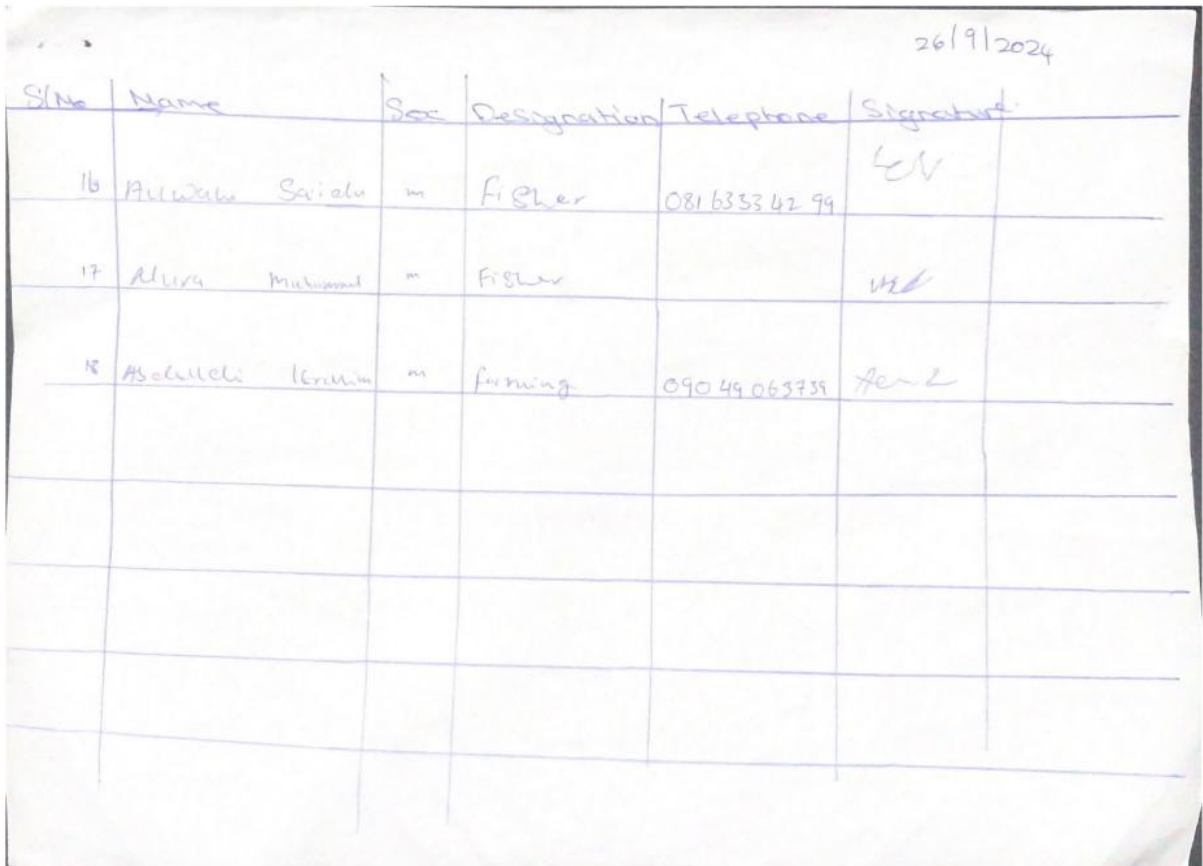 26/9/2024
S/No Name Sex Designation Telephone Signature
16 Auwalu Saidu m Fisher 08163334299
17 Muhammad m Fisher
18 Abdullahi Ibrahim m farming 09049063739